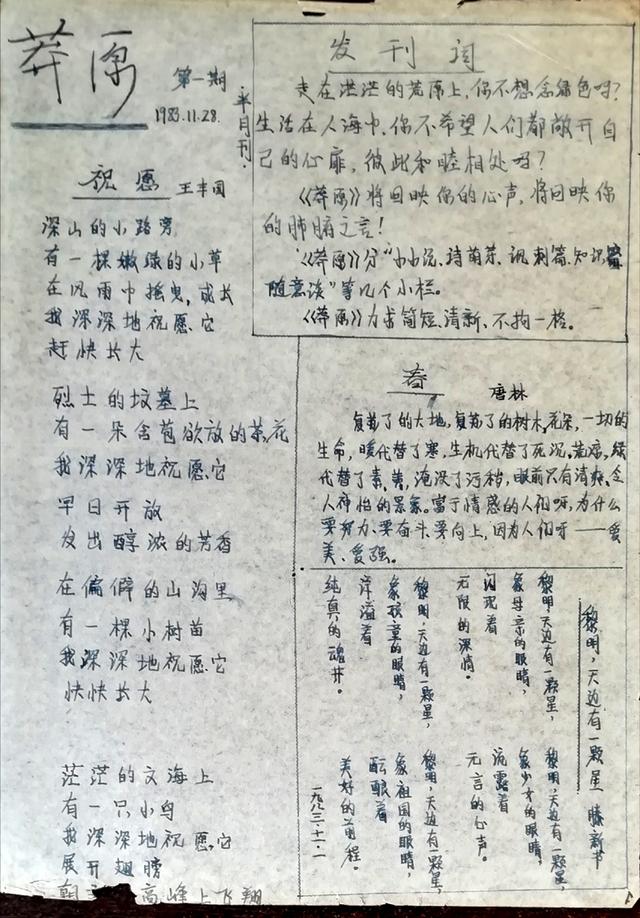 莽原
第一期
1983.11.28.
半月刊.
发刊词
走在茫茫的荒原上,你不想念绿色吗?
生活在人海中,你不希望人们都敞开自
己的心扉,彼此和睦相处吗?
《莽原》将回映你的心声,将回映你
的肺腑之言!
《莽原》分“小小说、诗萌芽、讽刺篇、知识窗
随意谈”等几个小栏。
《莽原》力求简短、清新、不拘一格。
祝愿
王丰国
深山的小路旁
有一棵嫩绿的小草
在风雨中摇曳,成长
我深深地祝愿它
赶快长大
烈士的坟墓上
有一朵含苞欲放的茶花
我深深地祝愿它
早日开放
发出醇浓的芳香
在偏僻的山沟里
有一棵小树苗
我深深地祝愿它
快快长大
茫茫的文海上
有一只小鸟
我深深地祝愿它
展开翅膀
朝 高峰上飞翔
春
唐林
复苏了的大地,复苏了的树木,花朵,一切的
生命,暖代替了寒,生机代替了死沉,荒磨,绿
代替了素,美,淹没了污秽,眼前只有清爽,令
人神怡的景象。富于情感的人们呀,为什么
要努力、要奋斗、要向上,因为人们呀——爱
美、爱强。
黎明,天边有一颗星
滕新书
黎明,天边有一颗星,
象母亲的眼睛,
闪现着
无限的深情。
黎明,天边有一颗星,
象孩童的眼睛,
洋溢着
纯真的魂井。
黎明,天边有一颗星,
象少女的眼睛,
流露着
无言的心声。
黎明,天边有一颗星,
象祖国的眼睛,
酝酿着
美好的前程。
一九八三·十一·一